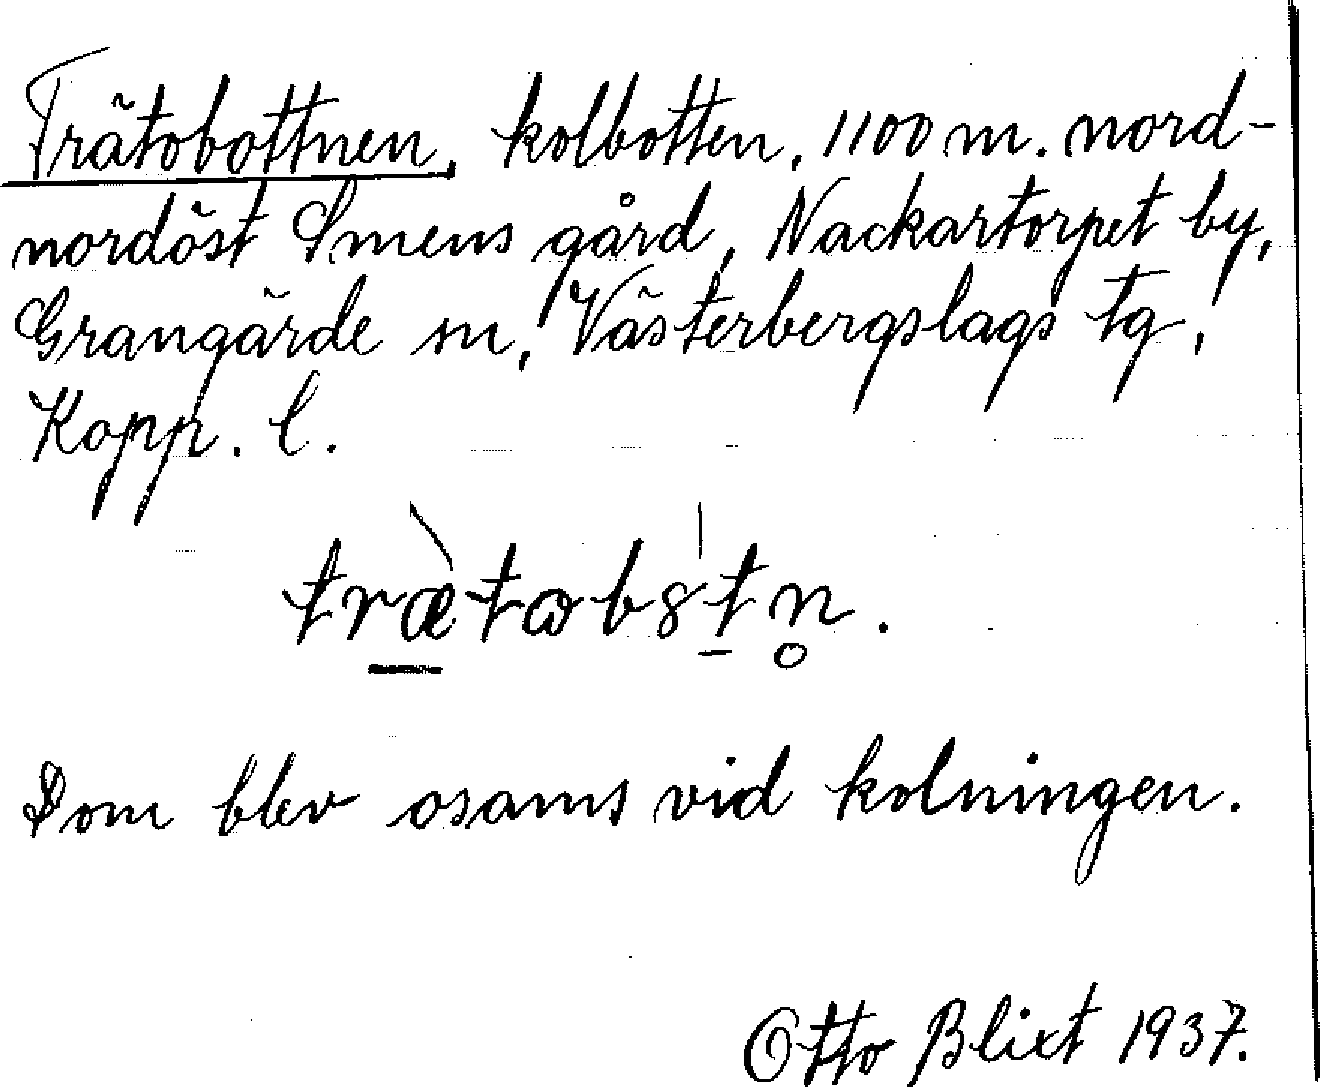 Trätobottnen, kolbotten, 1100 m. nord-
nordöst Smens gård, Nackartorpet by,
Grangärde sn, Västerbergslags tg,
Kopp. l.
træ̀tωbȣtn̥.
Dom blev osams vid kolningen.
Otto Blixt 1937.